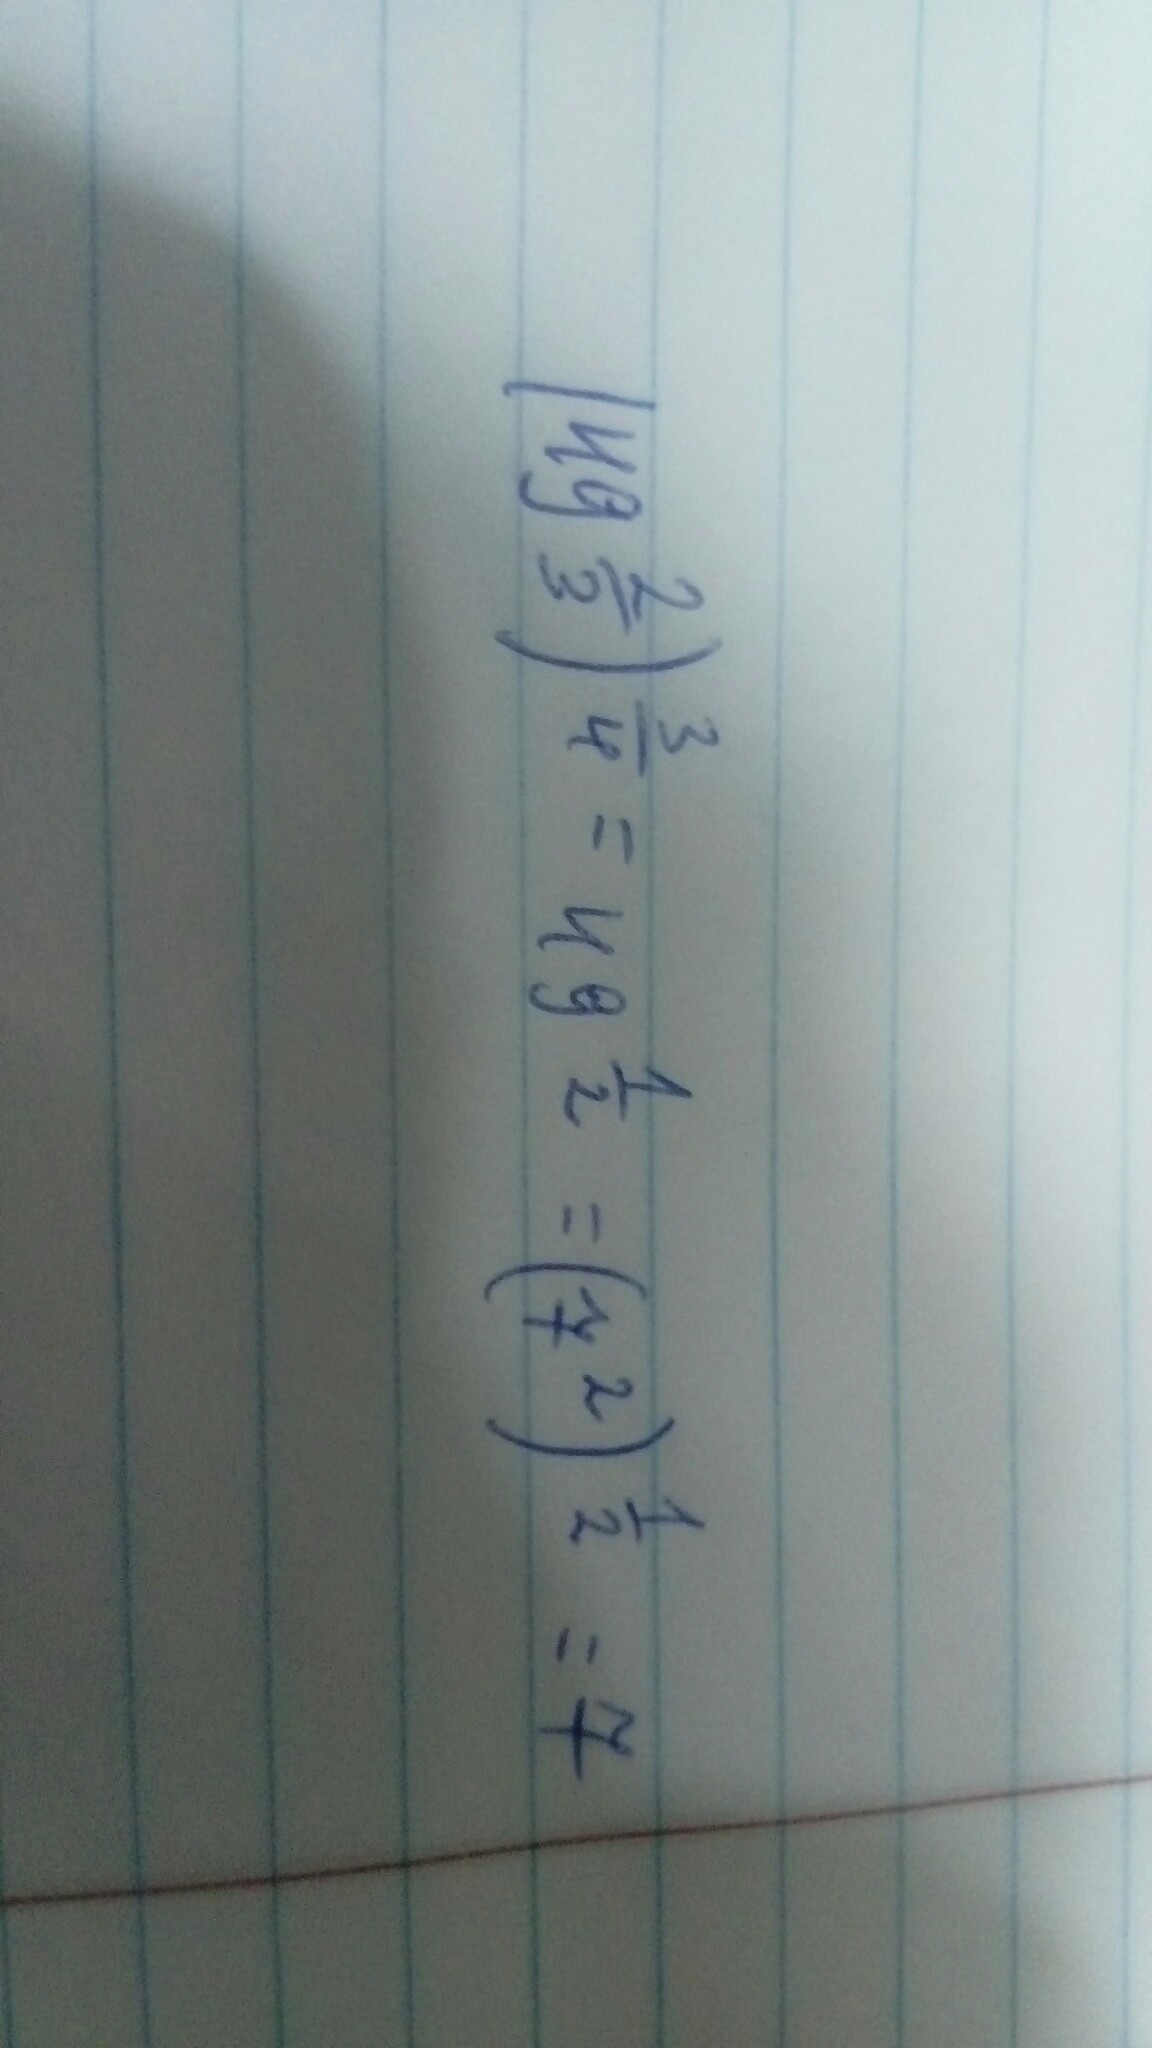 (49^{2/3})^{3/4} = 49^{1/2} = (7^2)^{1/2} = 7